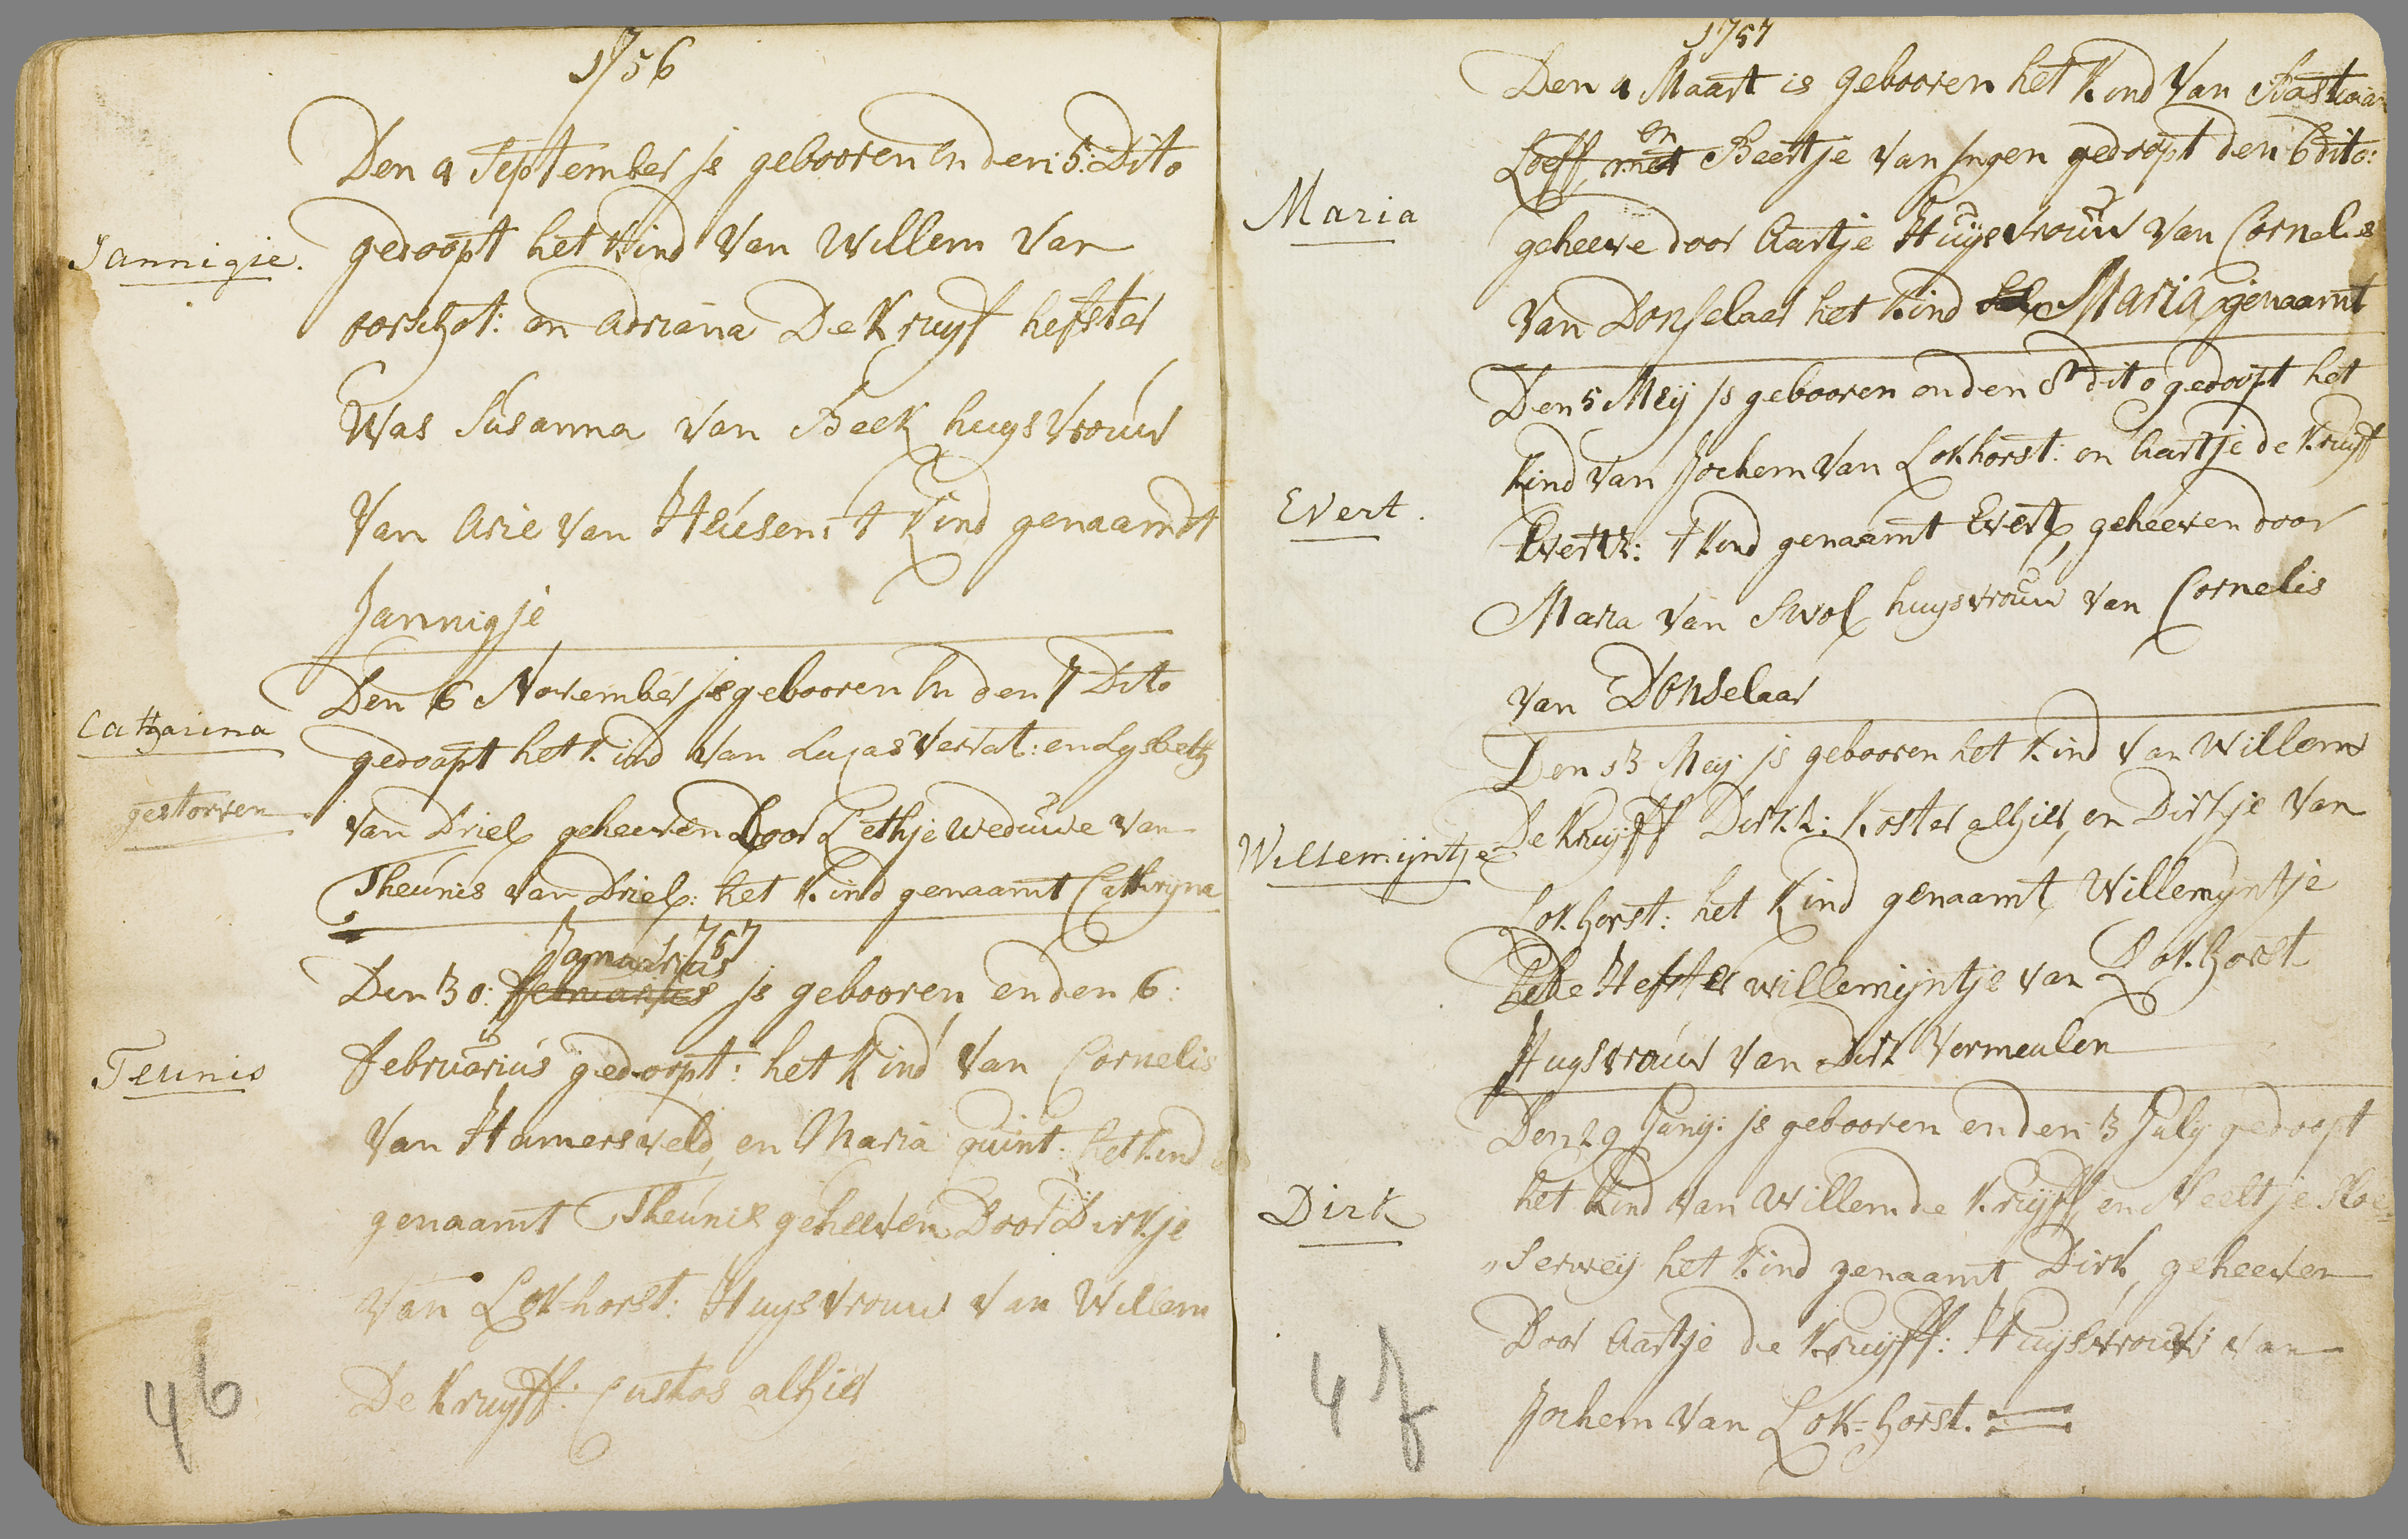 1756
Den 4 September js gebooren En den: 5: Dito
Jannigje.
gedoopt het Kind Van Willem Van
oorschot: en Adriana De Kruyf hefster
Was Susanna Van Beek huysvrouw
Van Arie Van Heusen: t Kind genaamdt
Jannigje
Den 6 November js gebooren En den 7 Dito
Catharina
gedoopt het Kind Van Lucas Vervat: en Lysbeth
gestorven
van Driel geheeven Door Lethje weduwe van
Theunis van Driel: het Kind genaamt Cathryna
Januarius 1757
Den 30: februarius js gebooren en den 6:
Teunis
februarius gedoopt: het Kind Van Cornelis
Van Hamersveld, en Maria quint. het kind
genaamt Theunis geheeven Door Dirkje
Van Lokhorst: Huysvrouw Van Willem
De Kruyff: Custos alhier
46
1757
Den 4 Maart is gebooren het Kind Van Bastiaan
en
Loeff, met Beertje Van Ingen gedoopt den 6 dito:
Maria
geheeve door Aartje Huysvrouw Van Cornelis
Van Donselaar het Kind Maria genaamt
Den 5 Meij js gebooren en den 8 dito gedoopt het
Kind Van Jochem Van Lokhorst: en Aartje de Kruyff
Evert.
Evertz: t Kind genaamt Evert, geheeven door
Maria Van Swol huysvrouw Van Cornelis
van Donselaar
Den 13 Meij js gebooren het Kind Van Willem
De Kruyff Dirkz: Koster alhier, en Dirkje Van
Willemijntje
Lokhorst: het Kind genaamt Willemyntje
Hefster willemijntje van Lokhorst
Huysvrouw Van Dirk Vermeulen
Den 29 Juny: js gebooren en den 3 July gedoopt
het Kind Van Willem de Kruyff, en Neeltje Kloe=
Dirk
„serweij het Kind genaamt Dirk, geheeven
Door Aartje de Kruyff: Huysvrouw van
Jochem Van Lok=horst.
47